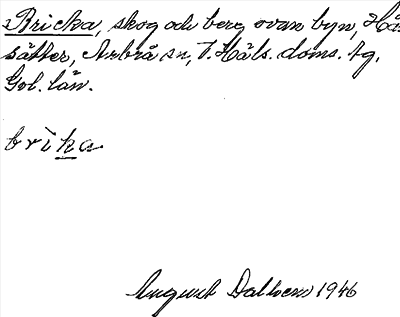 Bricka, skog och berg ovan byn, Hå-
sätter, Arbrå sn, V. Häls. doms. tg.
Gvl. län.
brìka
August Dalhem 1946